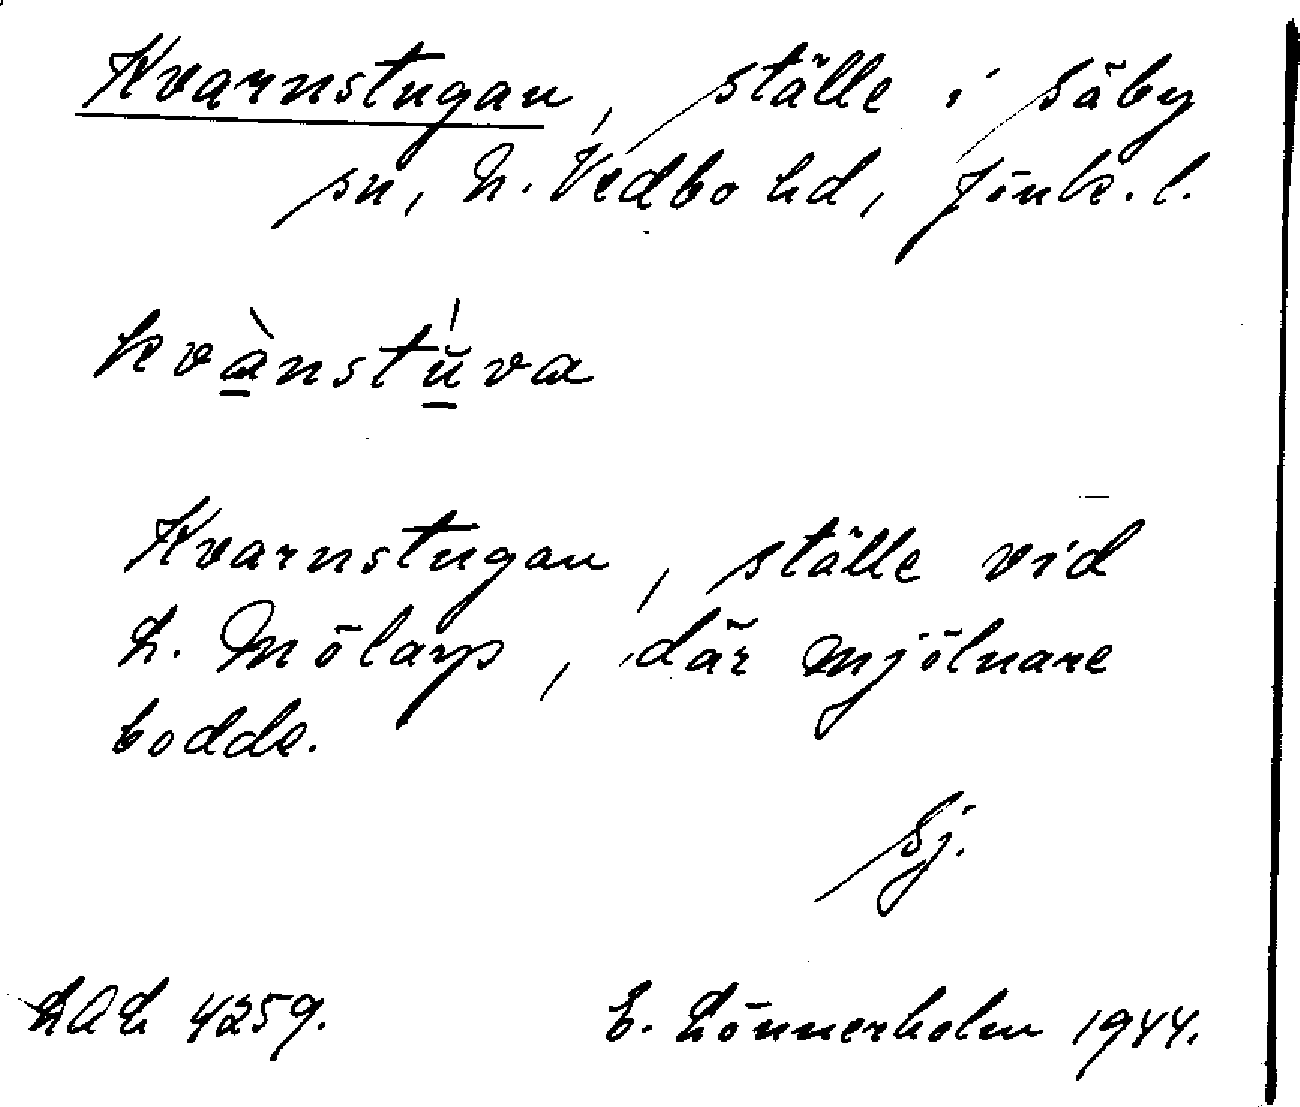 Kvarnstugan, ställe i Säby
sn, N. Vedbo hd, Jönk. l.
kvànstúva
Kvarnstugan, ställe vid
L. Mölarp, där mjölnare
bodde.
Sj.
LAL 4259.
E. Lönnerholm 1944.